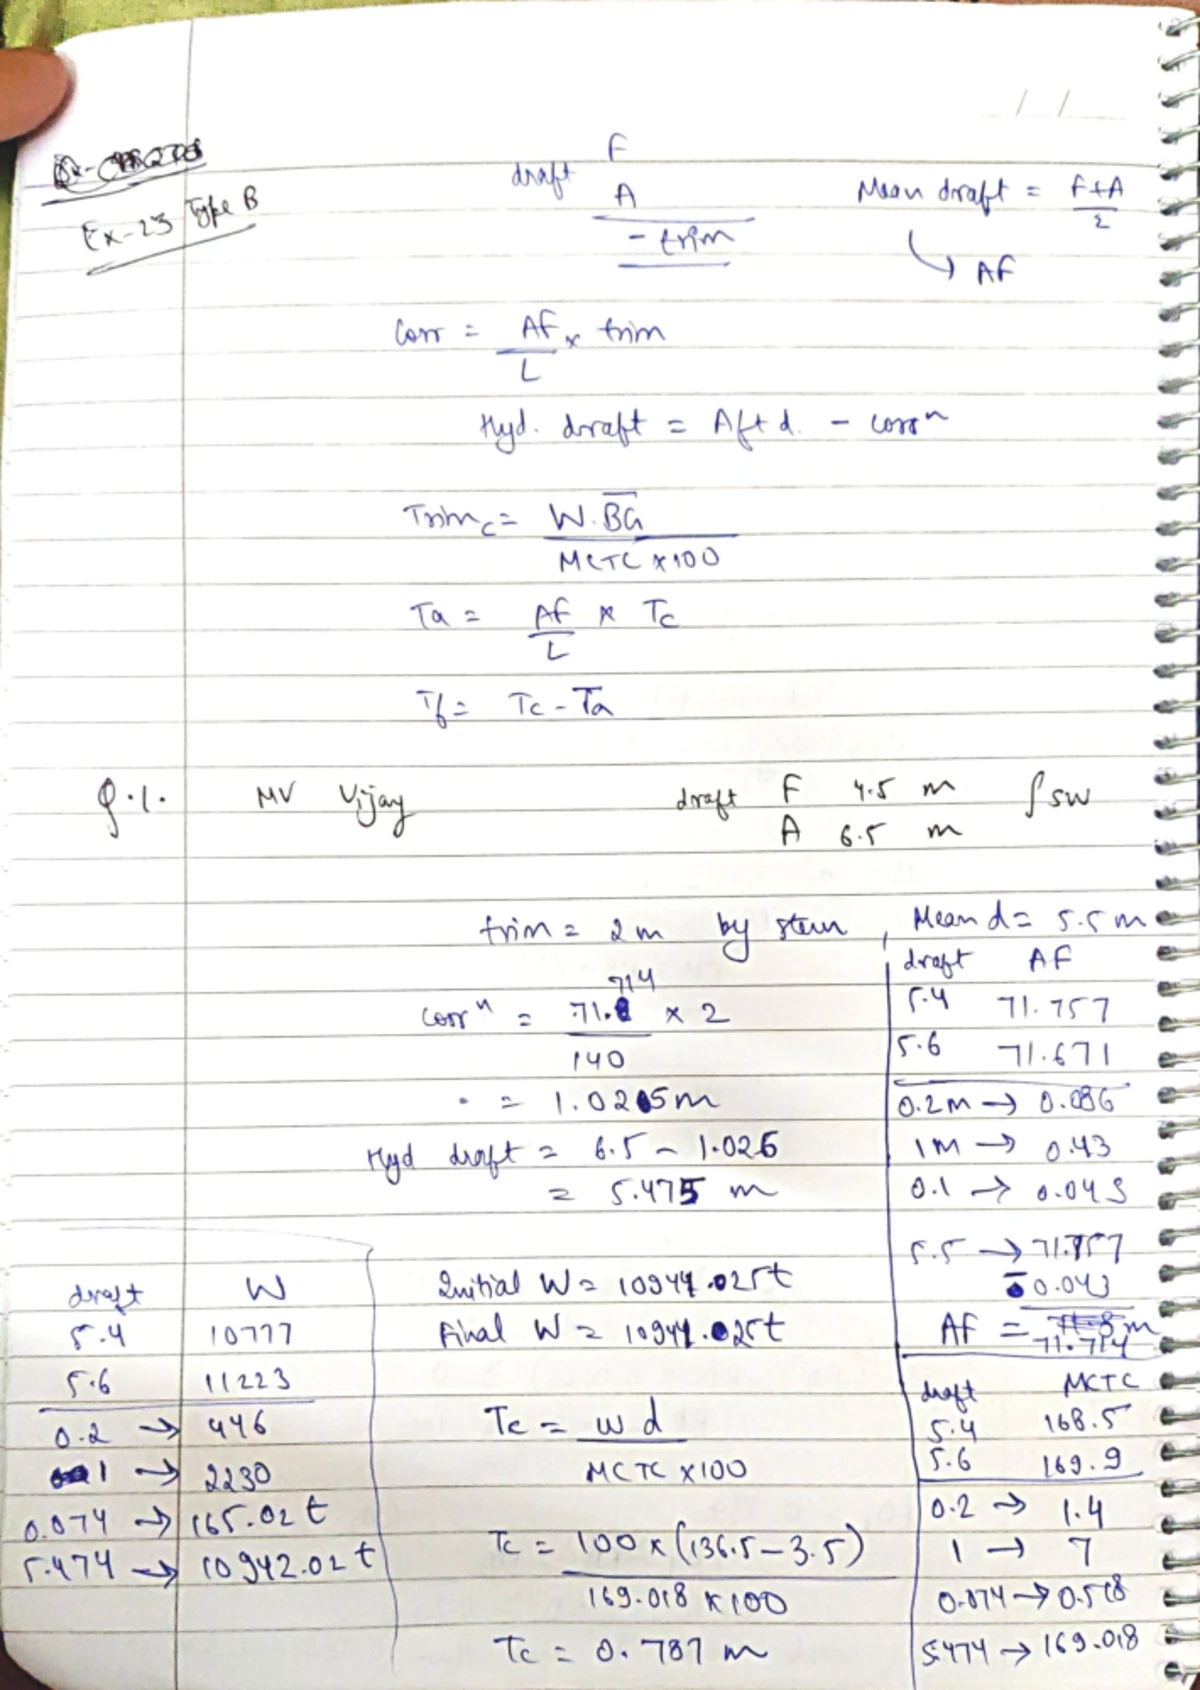 Ex-23 Type B
draft F
A
- trim
Mean draft = F+A
2
AF
Corr = AF x trim
L
Hyd. draft = Aft d. - corrⁿ
Trim c = W. BG
MCTC x 100
Ta = AF x Tc
L
Tf = Tc - Ta
Q.1. MV Vijay draft F 4.5 m SW
A 6.5 m
trim = 2 m by stern , Mean d = 5.5 m
corrⁿ = 71.714 x 2
140
= 1.025m
Hyd draft = 6.5 - 1.025
= 5.475 m
draft AF
5.4 71.757
5.6 71.671
0.2m → 0.086
1m → 0.43
0.1 → 0.043
5.5 → 71.757
- 0.043
AF = 71.714 m
draft W
5.4 10777
5.6 11223
0.2 → 446
1 → 2230
0.074 → 165.02 t
5.474 → 10942.02 t
Initial W = 10944.025t
Final W = 10944.025t
Tc = w d
MCTC x 100
Tc = 100 x (136.5 - 3.5)
169.018 x 100
Tc = 0.787 m
draft MCTC
5.4 168.5
5.6 169.9
0.2 → 1.4
1 → 7
0.074 → 0.518
5.474 → 169.018